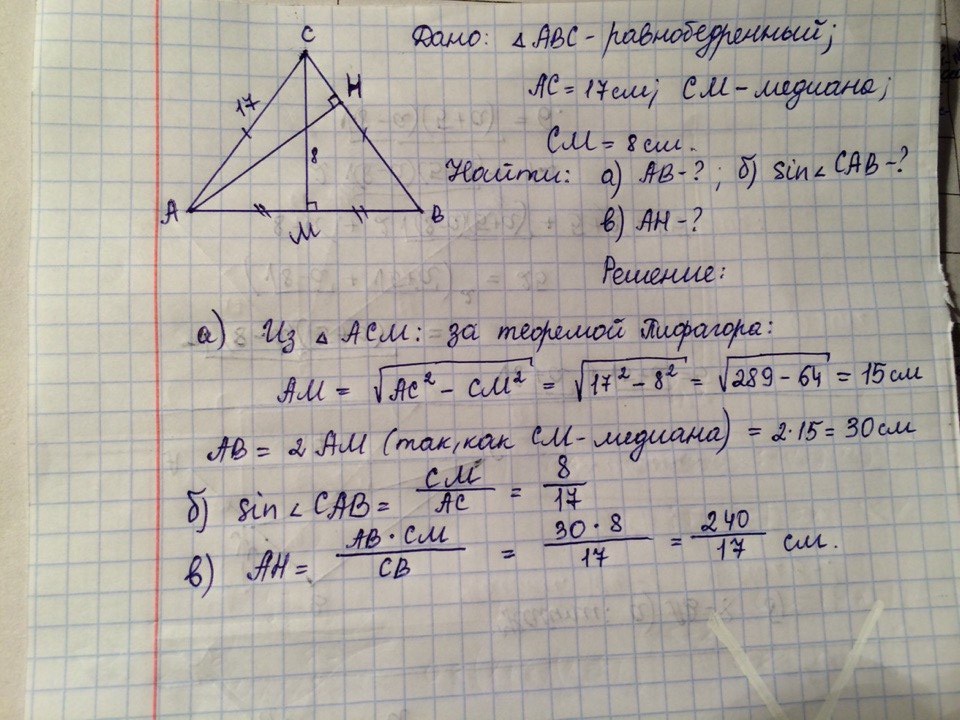 C
Дано: △ABC - равнобедренный;
H
17
AC = 17см; CM - медиана;
8
CM = 8см.
Найти: а) AB-?; б) sin∠CAB-?
A
M
B
в) AH-?
Решение:
а) Из △ACM: за теоремой Пифагора:
AM = √(AC² - CM²) = √(17² - 8²) = √(289 - 64) = 15см
AB = 2 AM (так, как CM - медиана) = 2·15 = 30см
б) sin∠CAB = CM/AC = 8/17
в) AH = AB·CM/CB = 30·8/17 = 240/17 см.